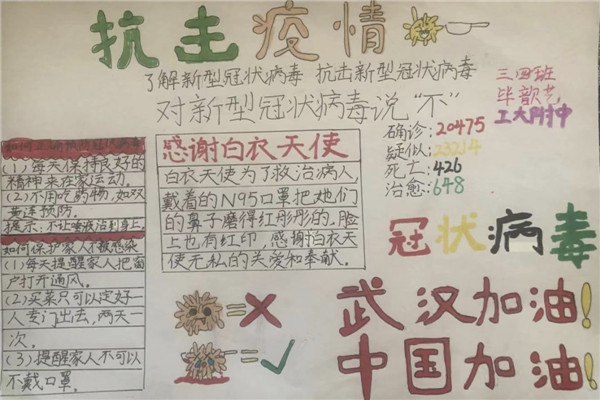 抗击疫情
了解新型冠状病毒 抗击新型冠状病毒
对新型冠状病毒说“不”
三四班
毕歆艺
工大附中
确诊:20475
疑似:23214
死亡:426
治愈:648
(1)每天保持良好的
精神来在家运动。
(2)不用吃药物,如双
黄连预防。
提示:不让唾液沾到身上
如何保护家人不被感染
(1)每天提醒家人把窗
户打开通风。
(2)买菜只可以定好一
人专门出去,两天一
次。
(3)提醒家人不可以
不戴口罩。
感谢白衣天使
白衣天使为了救治病人,
戴着的N95口罩把她们
的鼻子磨得红彤彤的。脸
上也有红印,感谢白衣天
使无私的关爱和奉献。
冠状病毒
=×
=✓
武汉加油!
中国加油!